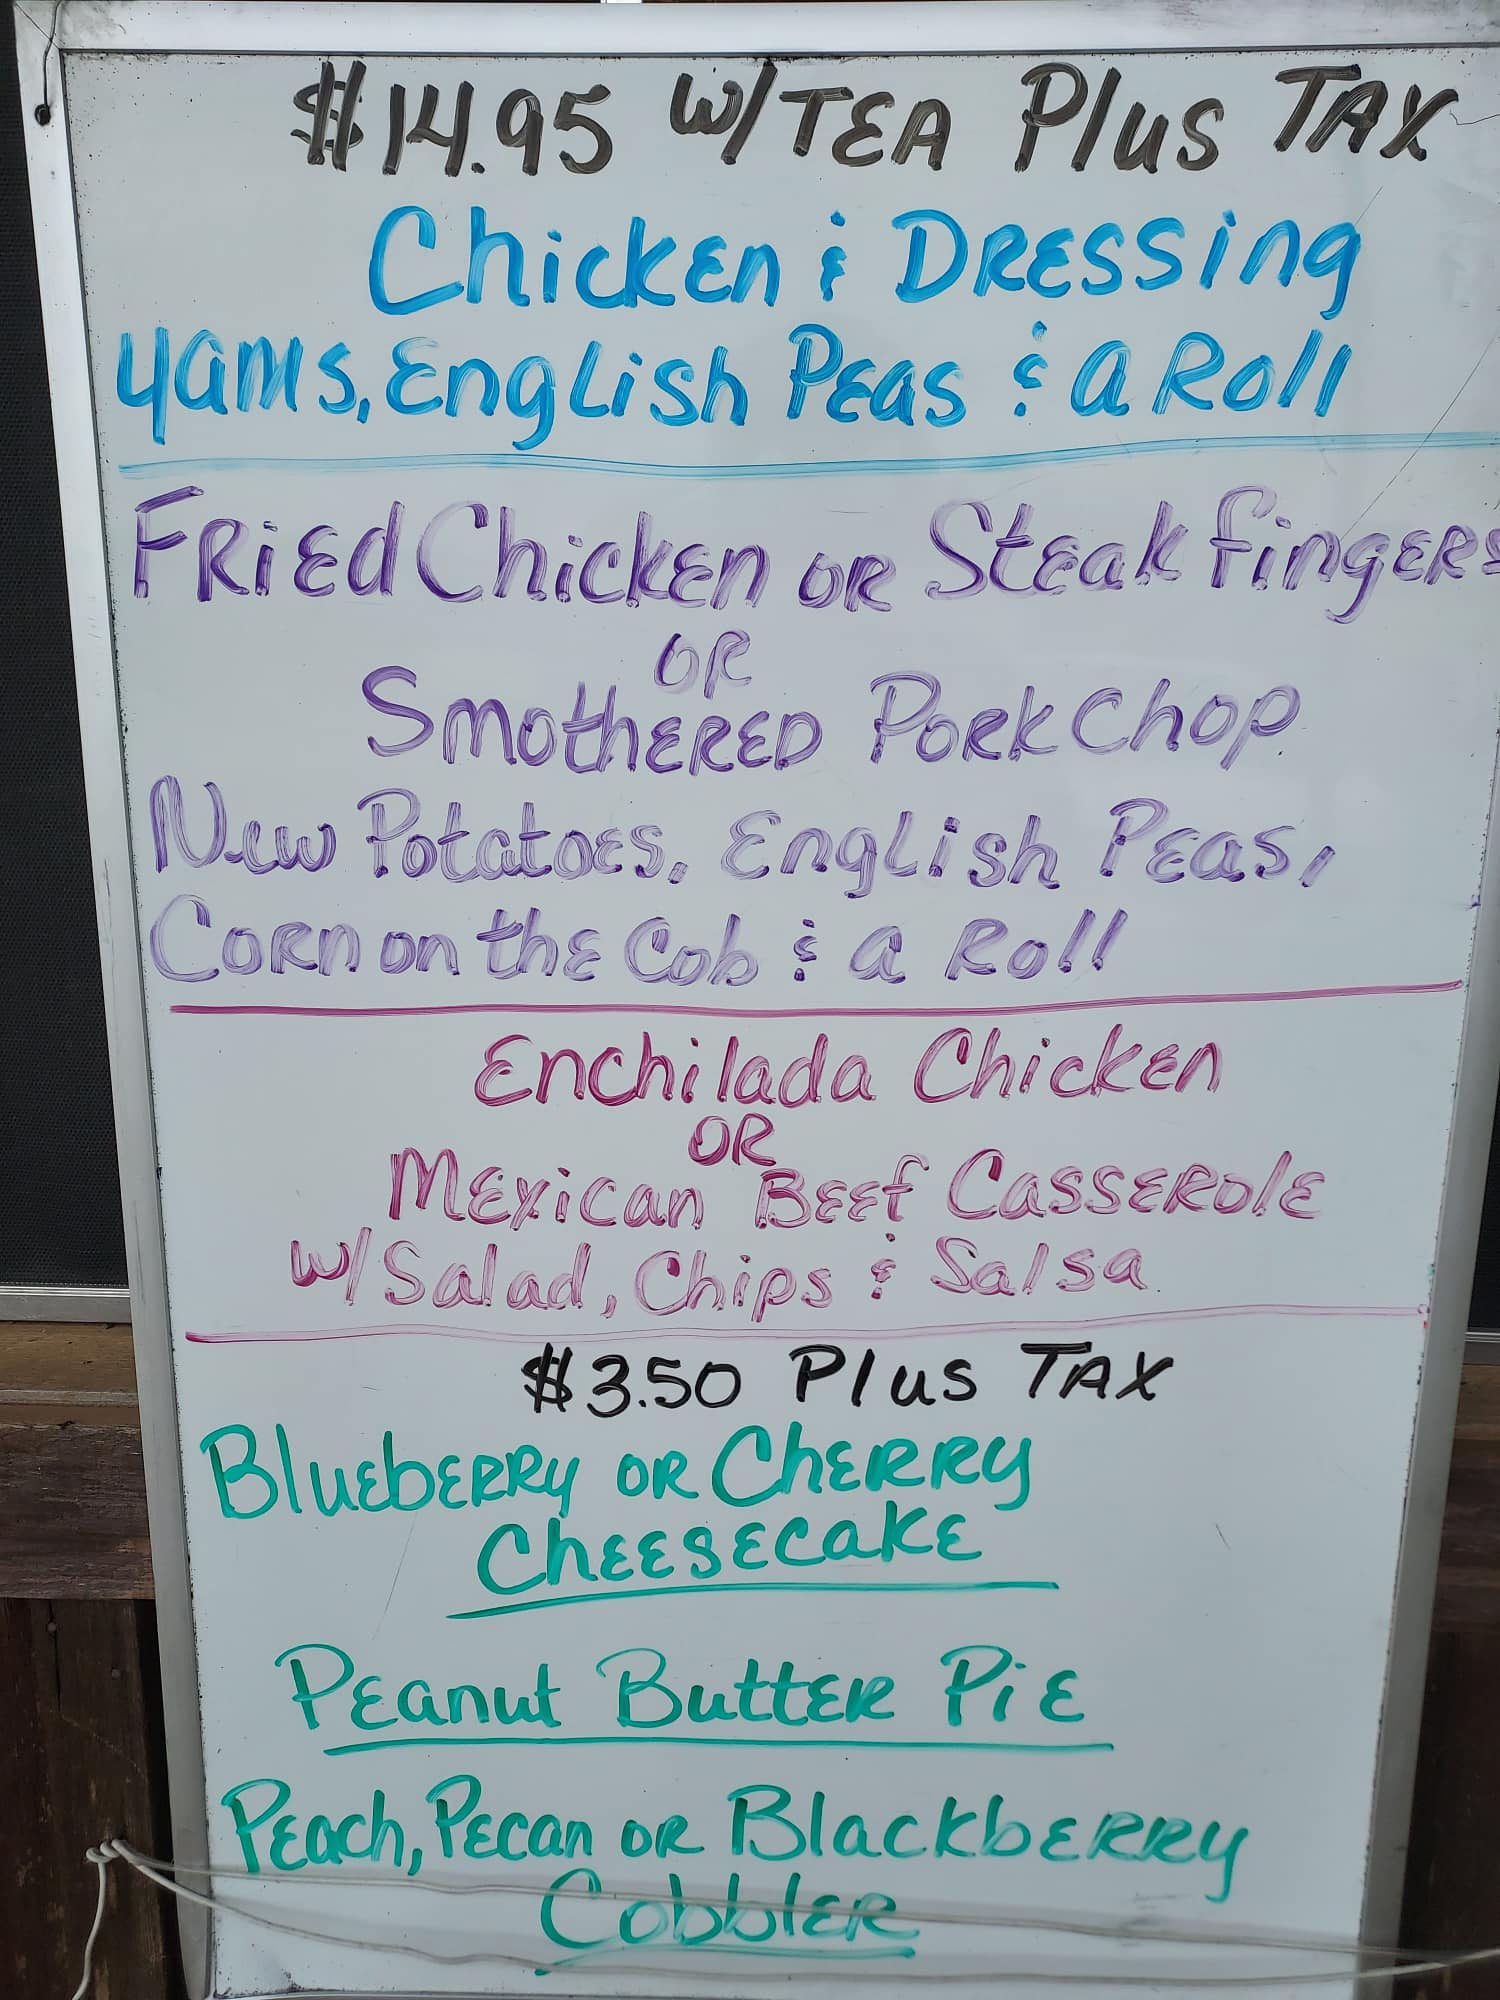 $14.95 W/TEA Plus TAX
Chicken & DRESSing
Yams, English Peas & a Roll
FRied Chicken or Steak fingers
OR
Smothered Pork Chop
New Potatoes, English Peas,
Corn on the Cob & a Roll
Enchilada Chicken
OR
Mexican Beef Casserole
w/Salad, Chips & Salsa
$3.50 Plus TAX
Blueberry or Cherry
Cheesecake
Peanut Butter Pie
Peach, Pecan or Blackberry
Cobbler